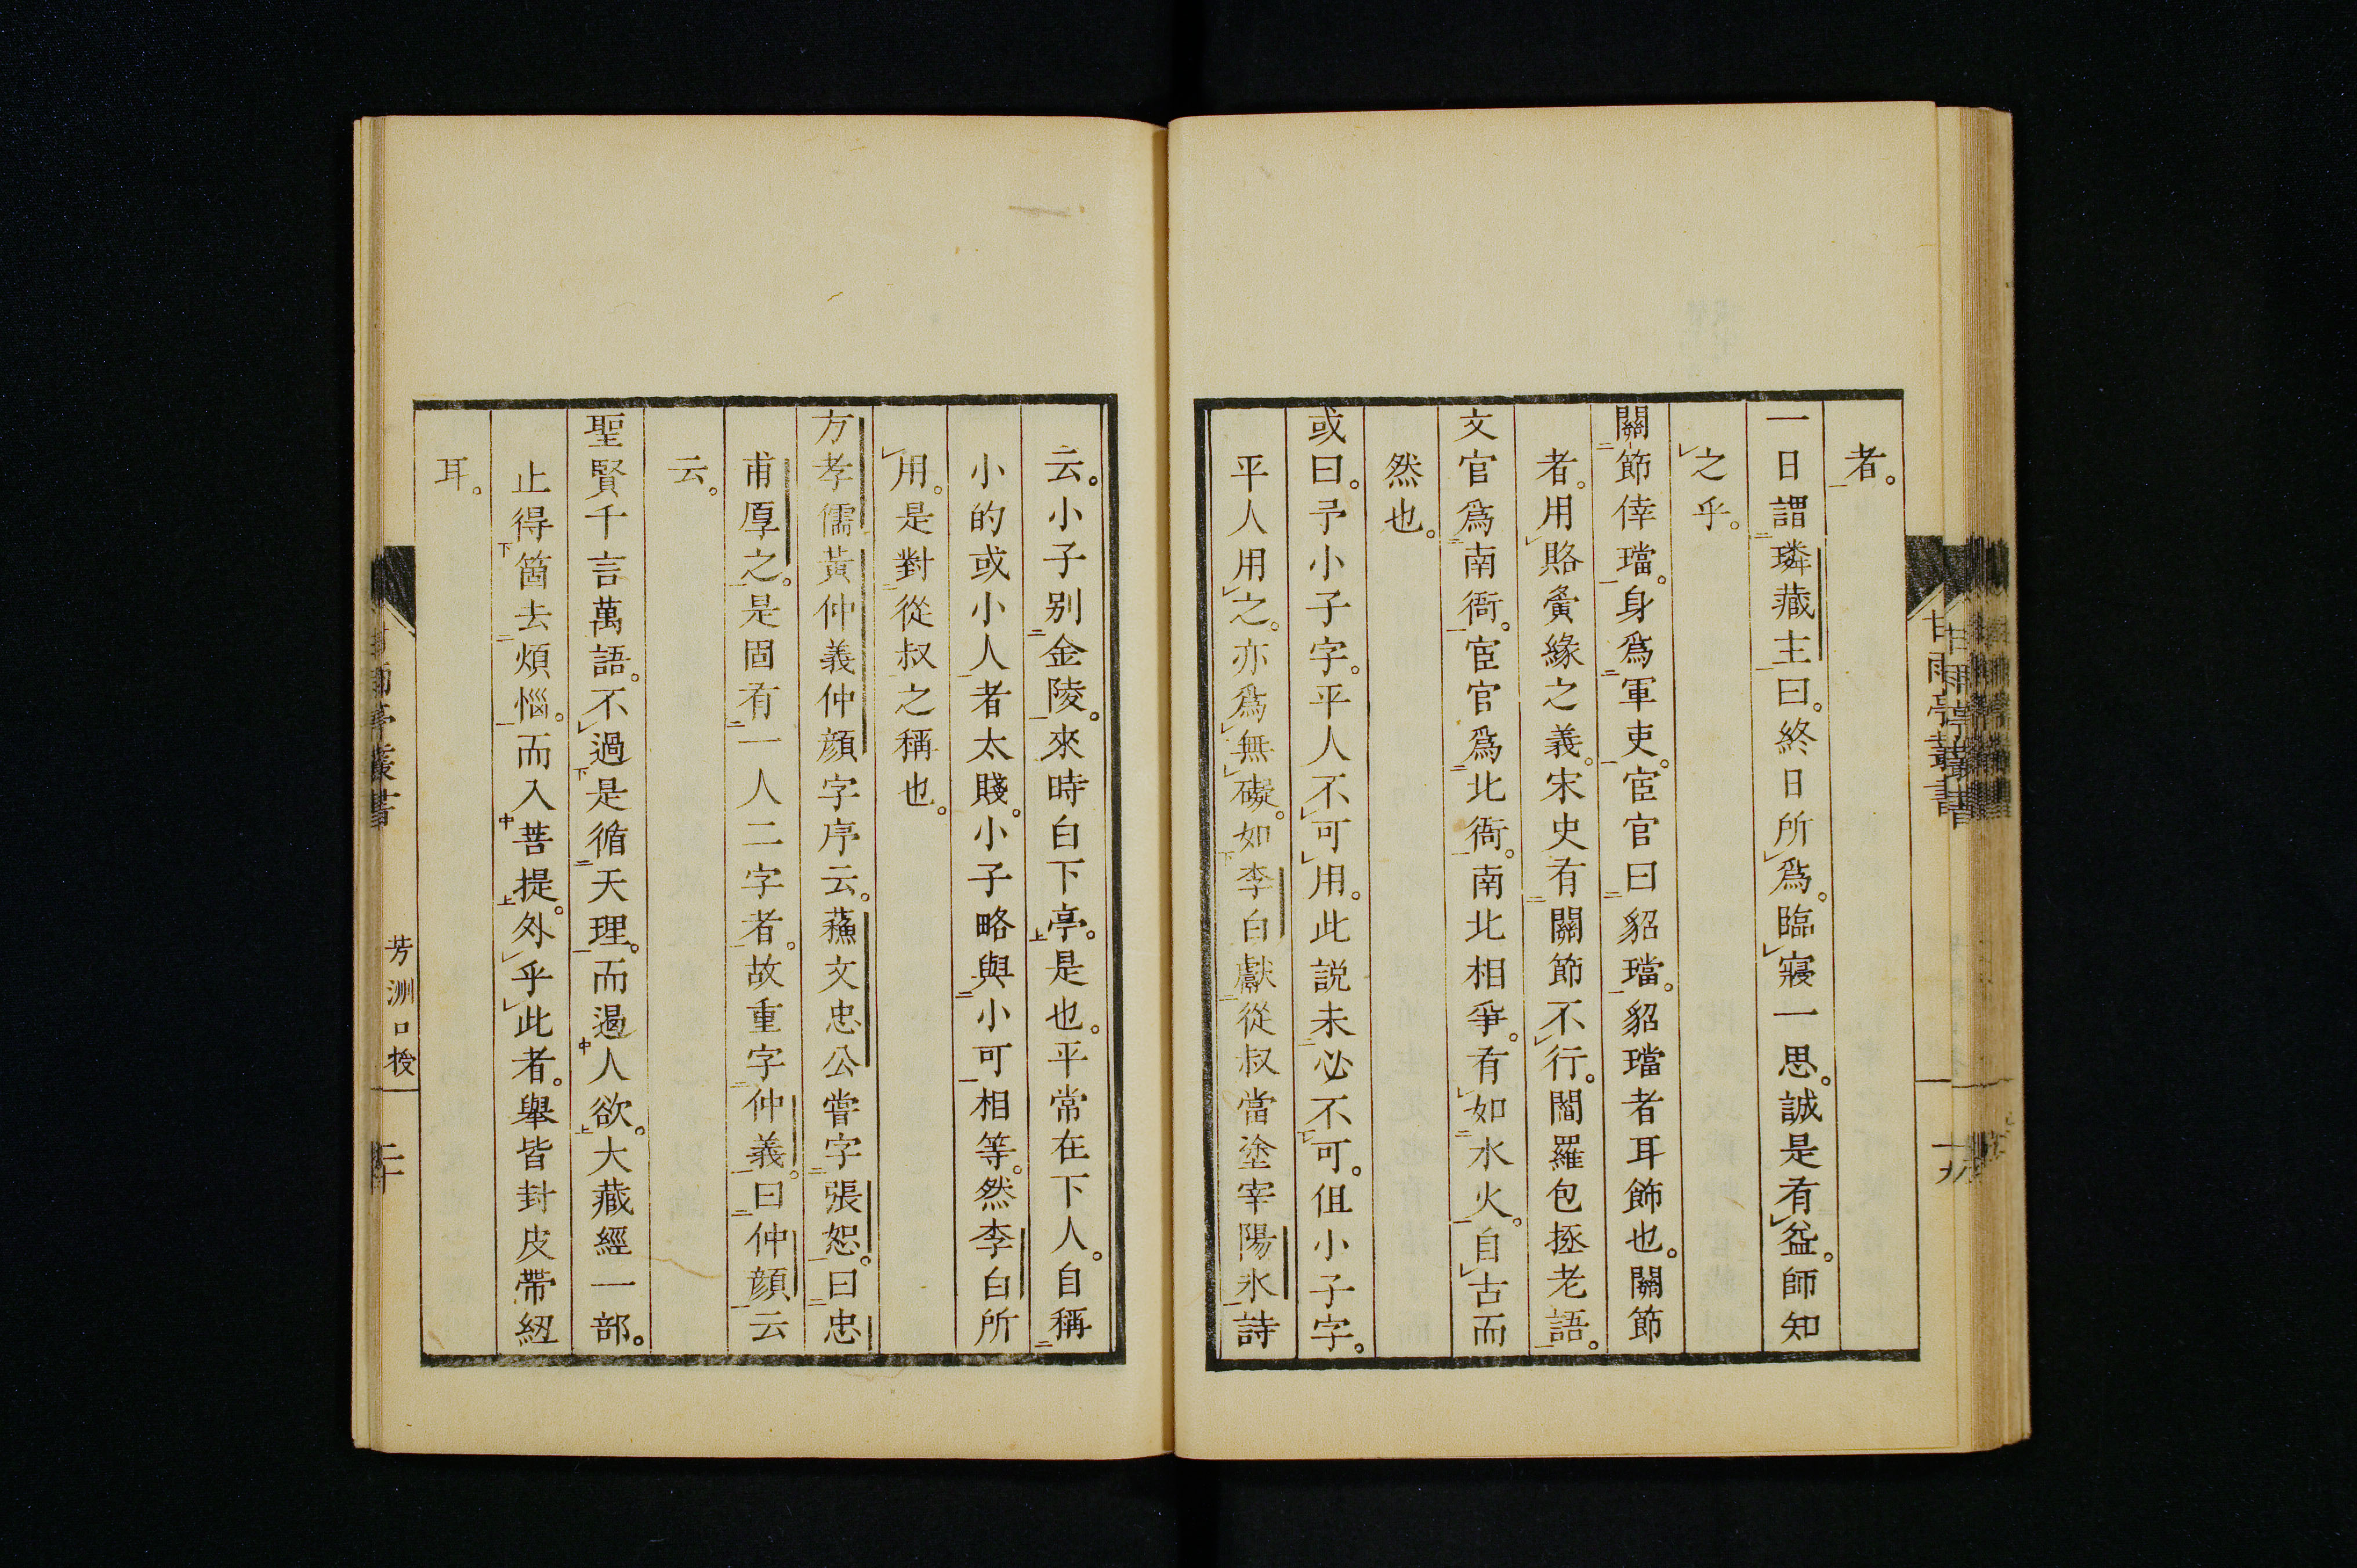 者。
一日謂璘藏主曰。終日所爲。臨寢一思。誠是有益。師知
之乎。
關節倖璫。身爲軍吏。宦官曰貂璫。貂璫者耳飾也。關節
者。用賂夤緣之義。宋史有關節不行。閻羅包拯老語。
文官爲南衙。宦官爲北衙。南北相爭。有如水火。自古而
然也。
或曰。予小子字。平人不可用。此説未必不可。但小子字。
平人用之。亦爲無礙。如李白獻從叔當塗宰陽氷詩
云。小子別金陵。來時白下亭。是也。平常在下人。自稱
小的或小人者太賤。小子略與小可相等。然李白所
用。是對從叔之稱也。
方孝儒黃仲義仲顔字序云。蘓文忠公嘗字張恕。曰忠
甫厚之。是固有一人二字者。故重字仲義。曰仲顔云
云。
聖賢千言萬語。不過是循天理。而遏人欲。大藏經一部。
止得箇去煩惱。而入菩提。外乎此者。舉皆封皮帶紐
耳。
甘雨亭叢書
十九
芳洲口授
二十